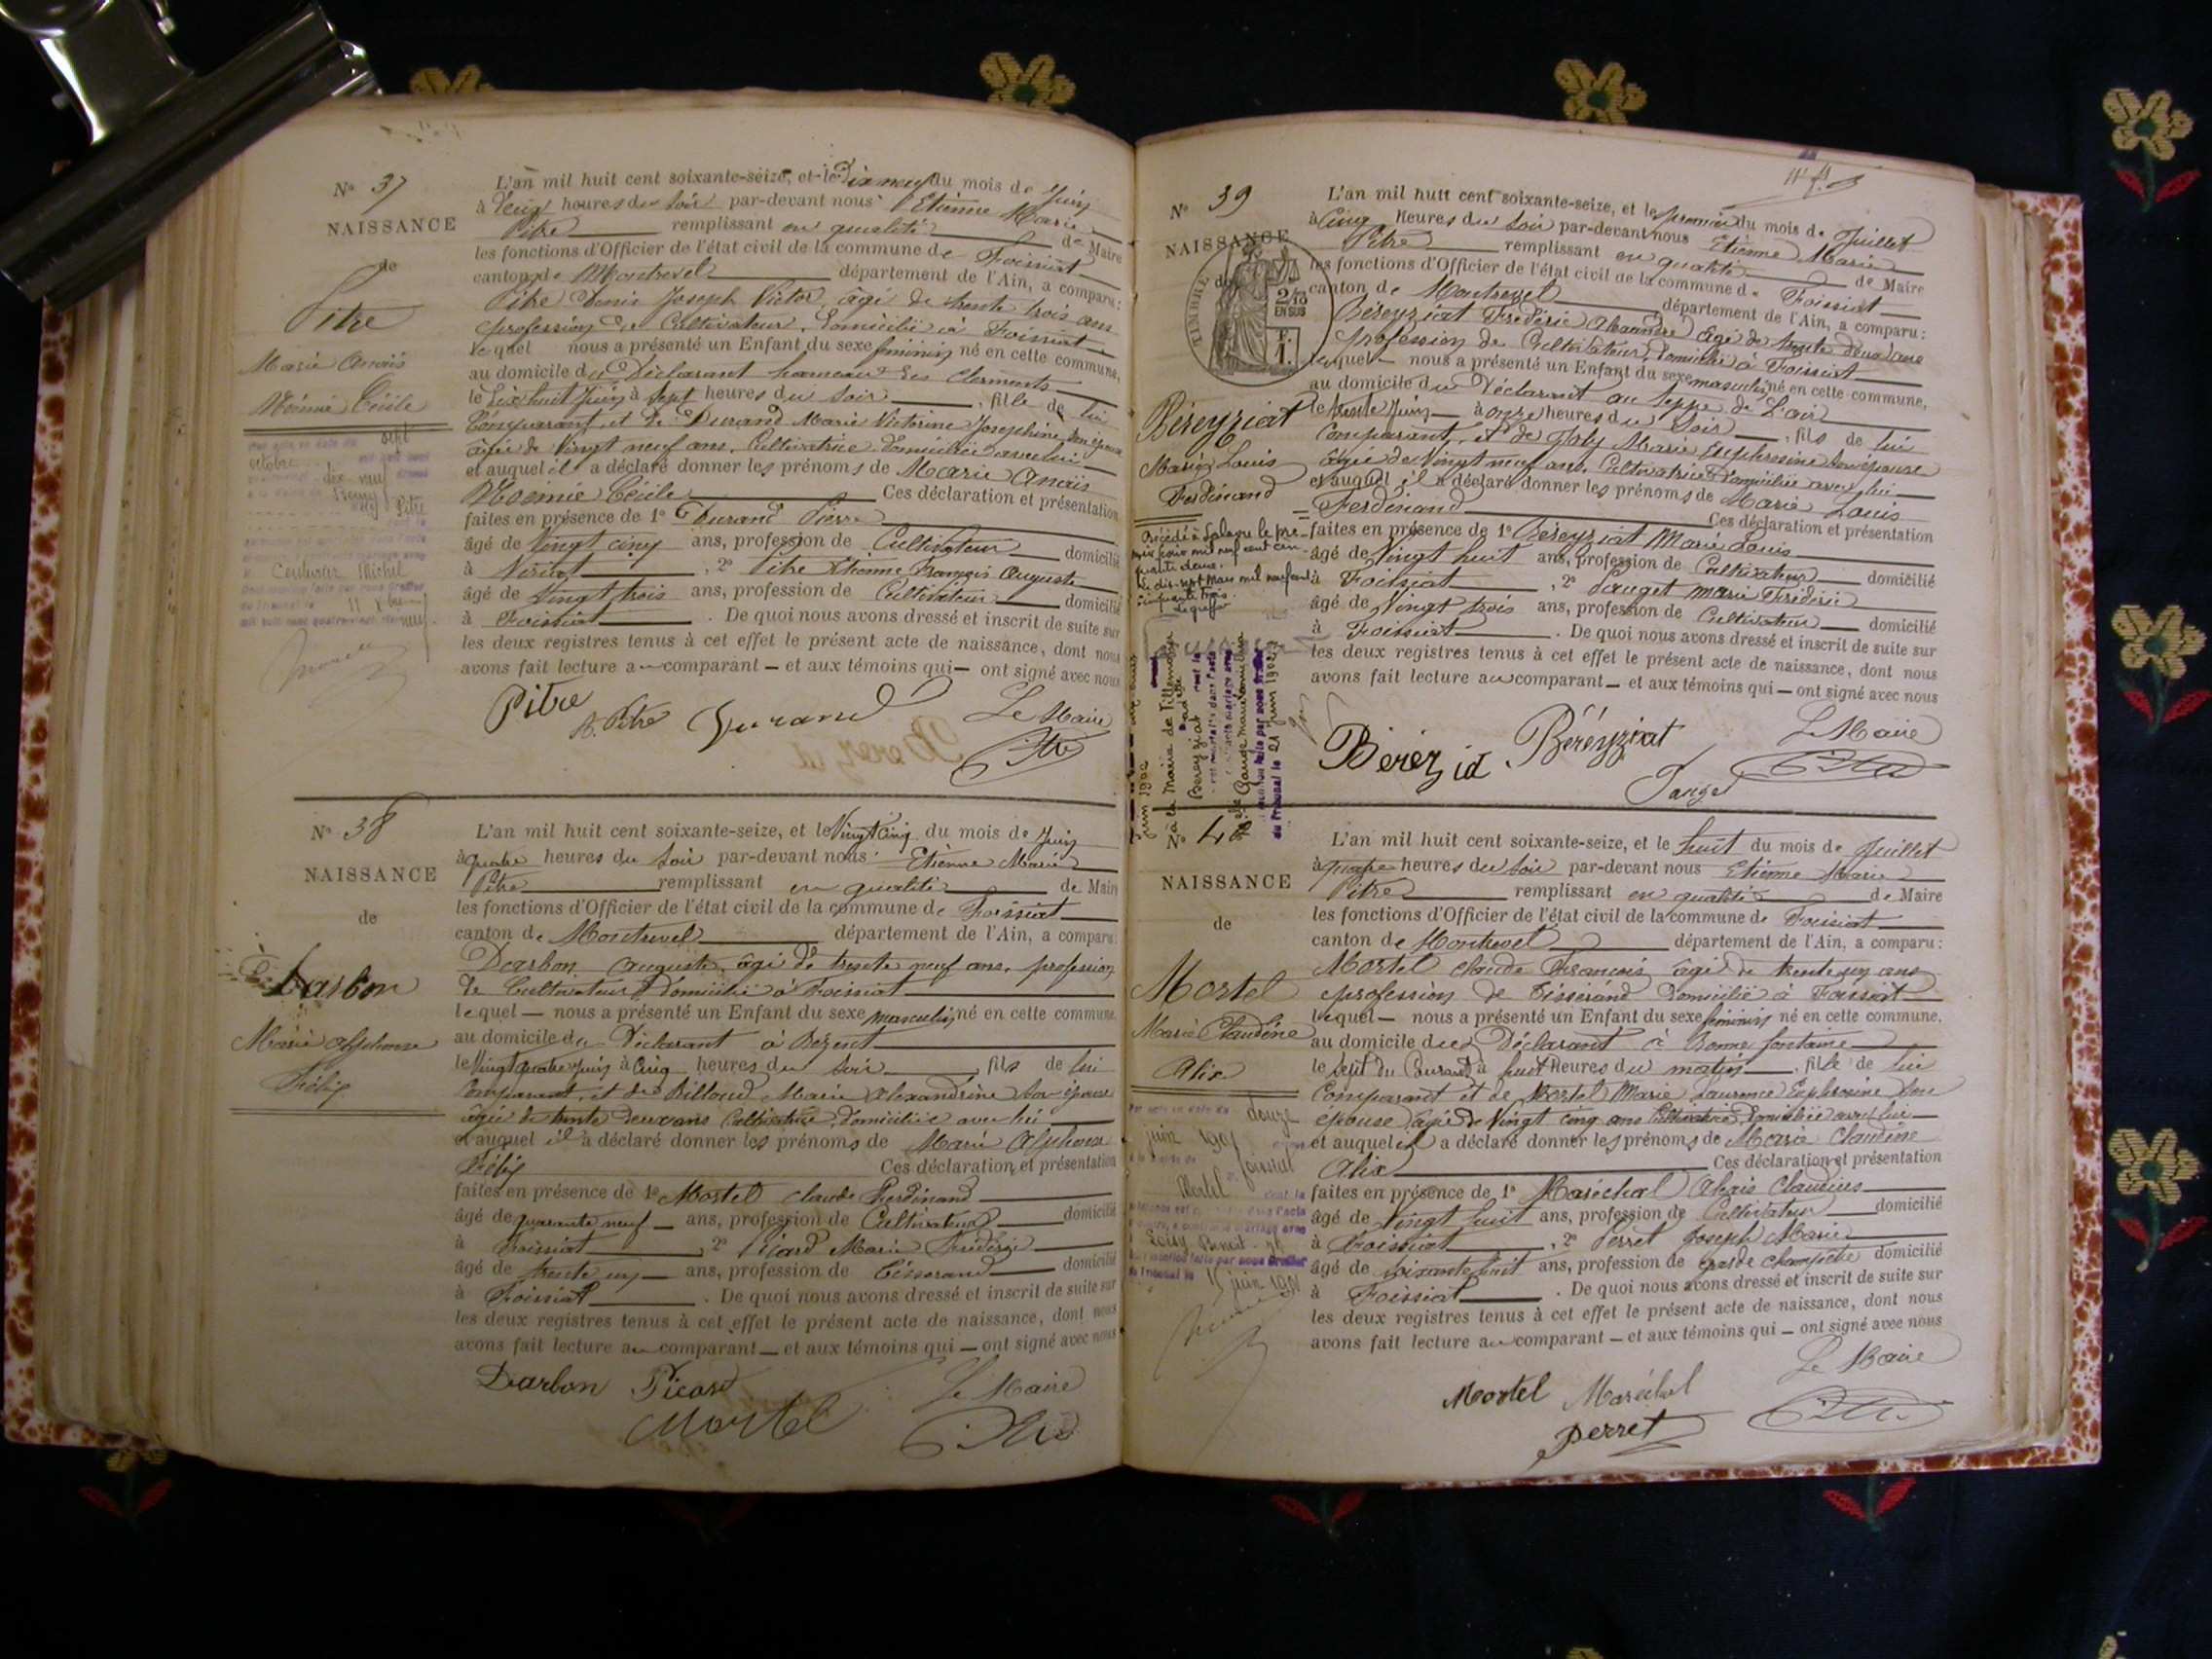 No 37
NAISSANCE
de
Pitre
Marie Anaïs
Noémie Cécile
L'an mil huit cent soixante-seize, et le Dix neuf du mois de Juin
à Deux heures du Soir par-devant nous Etienne Marie
Pitre remplissant en qualité de Maire
les fonctions d'Officier de l'état civil de la commune de Foissiat
canton de Montrevel département de l'Ain, a comparu:
Pitre Denis Joseph Victor, âgé de trente trois ans
profession de Cultivateur, domicilié à Foissiat
lequel nous a présenté un Enfant du sexe féminin né en cette commune,
au domicile du Déclarant hameau des Clermonts
le Dix huit Juin à Sept heures du Soir, fille de lui
Comparant, et de Durand Marie Victorine Josephine son épouse
âgée de Vingt neuf ans, Cultivatrice domiciliée avec lui
et auquel il a déclaré donner les prénoms de Marie Anaïs
Noémie Cécile Ces déclaration et présentation
faites en présence de 1o Durand Pierre
âgé de Vingt cinq ans, profession de Cultivateur domicilié
à , 2o Pitre Etienne François Auguste
âgé de Vingt trois ans, profession de Cultivateur domicilié
à Foissiat. De quoi nous avons dressé et inscrit de suite sur
les deux registres tenus à cet effet le présent acte de naissance, dont nous
avons fait lecture au comparant — et aux témoins qui — ont signé avec nous
Pitre Durand Le Maire
Pitre
No 38
NAISSANCE
de
Darbon
Marie Alphonse
Félix
L'an mil huit cent soixante-seize, et le Vingt cinq du mois de Juin
à quatre heures du Soir par-devant nous Etienne Marie
Pitre remplissant en qualité de Maire
les fonctions d'Officier de l'état civil de la commune de Foissiat
canton de Montrevel département de l'Ain, a comparu:
Darbon Auguste, âgé de trente neuf ans, profession
de Cultivateur, domicilié à Foissiat
lequel — nous a présenté un Enfant du sexe masculin né en cette commune,
au domicile du Déclarant à Bezent
le Vingt quatre Juin à Cinq heures du Soir, fils de lui
Comparant, et de Billoud Marie Alexandrine son épouse
âgée de trente deux ans Cultivatrice, domiciliée avec lui
et auquel il a déclaré donner les prénoms de Marie Alphonse
Félix Ces déclaration et présentation
faites en présence de 1o Mortel Claude Ferdinand
âgé de quarante neuf — ans, profession de Cultivateur domicilié
à Foissiat, 2o Picard Marie Fréderic
âgé de trente un — ans, profession de Tisserand domicilié
à Foissiat. De quoi nous avons dressé et inscrit de suite sur
les deux registres tenus à cet effet le présent acte de naissance, dont nous
avons fait lecture au comparant — et aux témoins qui — ont signé avec nous
Darbon Picard Le Maire
Mortel Pitre
No 39
NAISSANCE
de
TIMBRE
2/10
EN SUS
Béreyziat
Marie Louis
Ferdinand
L'an mil huit cent soixante-seize, et le premier du mois de Juillet
à Cinq heures du Soir par-devant nous Etienne Marie
Pitre remplissant en qualité de Maire
les fonctions d'Officier de l'état civil de la commune de Foissiat
canton de Montrevel département de l'Ain, a comparu:
Béreyziat Frédéric Alexandre âgé de trente deux ans
profession de Cultivateur, domicilié à Foissiat
lequel — nous a présenté un Enfant du sexe masculin né en cette commune,
au domicile du Déclarant au
le trente Juin à onze heures du Soir, fils de lui
Comparant, et de Joly Marie Euphrosine son épouse
âgée de Vingt neuf ans, Cultivatrice domiciliée avec lui
et auquel il a déclaré donner les prénoms de Marie Louis
Ferdinand Ces déclaration et présentation
faites en présence de 1o Béreyziat Marie Louis
âgé de Vingt huit ans, profession de Cultivateur domicilié
à Foissiat, 2o marie Fréderic
âgé de Vingt trois ans, profession de Cultivateur domicilié
à Foissiat. De quoi nous avons dressé et inscrit de suite sur
les deux registres tenus à cet effet le présent acte de naissance, dont nous
avons fait lecture au comparant — et aux témoins qui — ont signé avec nous
Béréyziat Le Maire
Pitre
No 40
NAISSANCE
de
Mortel
Marie Claudine
Alix
L'an mil huit cent soixante-seize, et le huit du mois de Juillet
à quatre heures du Soir par-devant nous Etienne Marie
Pitre remplissant en qualité de Maire
les fonctions d'Officier de l'état civil de la commune de Foissiat
canton de Montrevel département de l'Ain, a comparu:
Mortel Claude François, âgé de trente un ans
profession de Tisserand domicilié à Foissiat
lequel — nous a présenté un Enfant du sexe féminin né en cette commune,
au domicile du Déclarant à Bonne fontaine
le Sept du Courant à huit heures du matin, fille de lui
Comparant et de Mortel Marie Laurence Euphrosine son
épouse âgée de Vingt cinq ans Cultivatrice domiciliée avec lui
et auquel il a déclaré donner les prénoms de Marie Claudine
Alix Ces déclaration et présentation
faites en présence de 1o Maréchal Claudius
âgé de Vingt huit ans, profession de Cultivateur domicilié
à Foissiat, 2o Perret Joseph Marie
âgé de Soixante huit ans, profession de garde champêtre domicilié
à Foissiat. De quoi nous avons dressé et inscrit de suite sur
les deux registres tenus à cet effet le présent acte de naissance, dont nous
avons fait lecture au comparant — et aux témoins qui — ont signé avec nous
Mortel Maréchal Le Maire
Perret Pitre